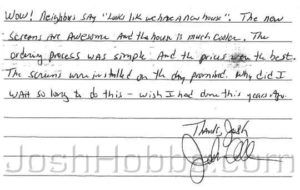 Wow! Neighbors say "Looks like we have a new house". The new
screens are awesome and the house is much cooler. The
ordering process was simple and the prices were the best.
The screens were installed on the day promised. Why did I
wait so long to do this - wish I had done this years ago.
Thanks, Josh
JoshHobbs.com